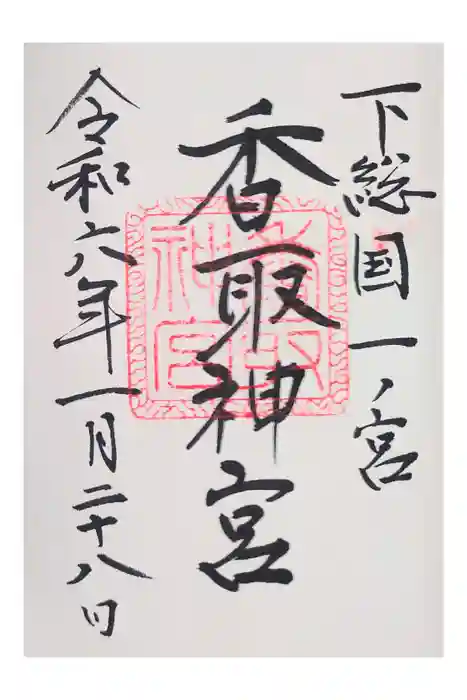 下総国一ノ宮
香取神宮
令和六年一月二十八日